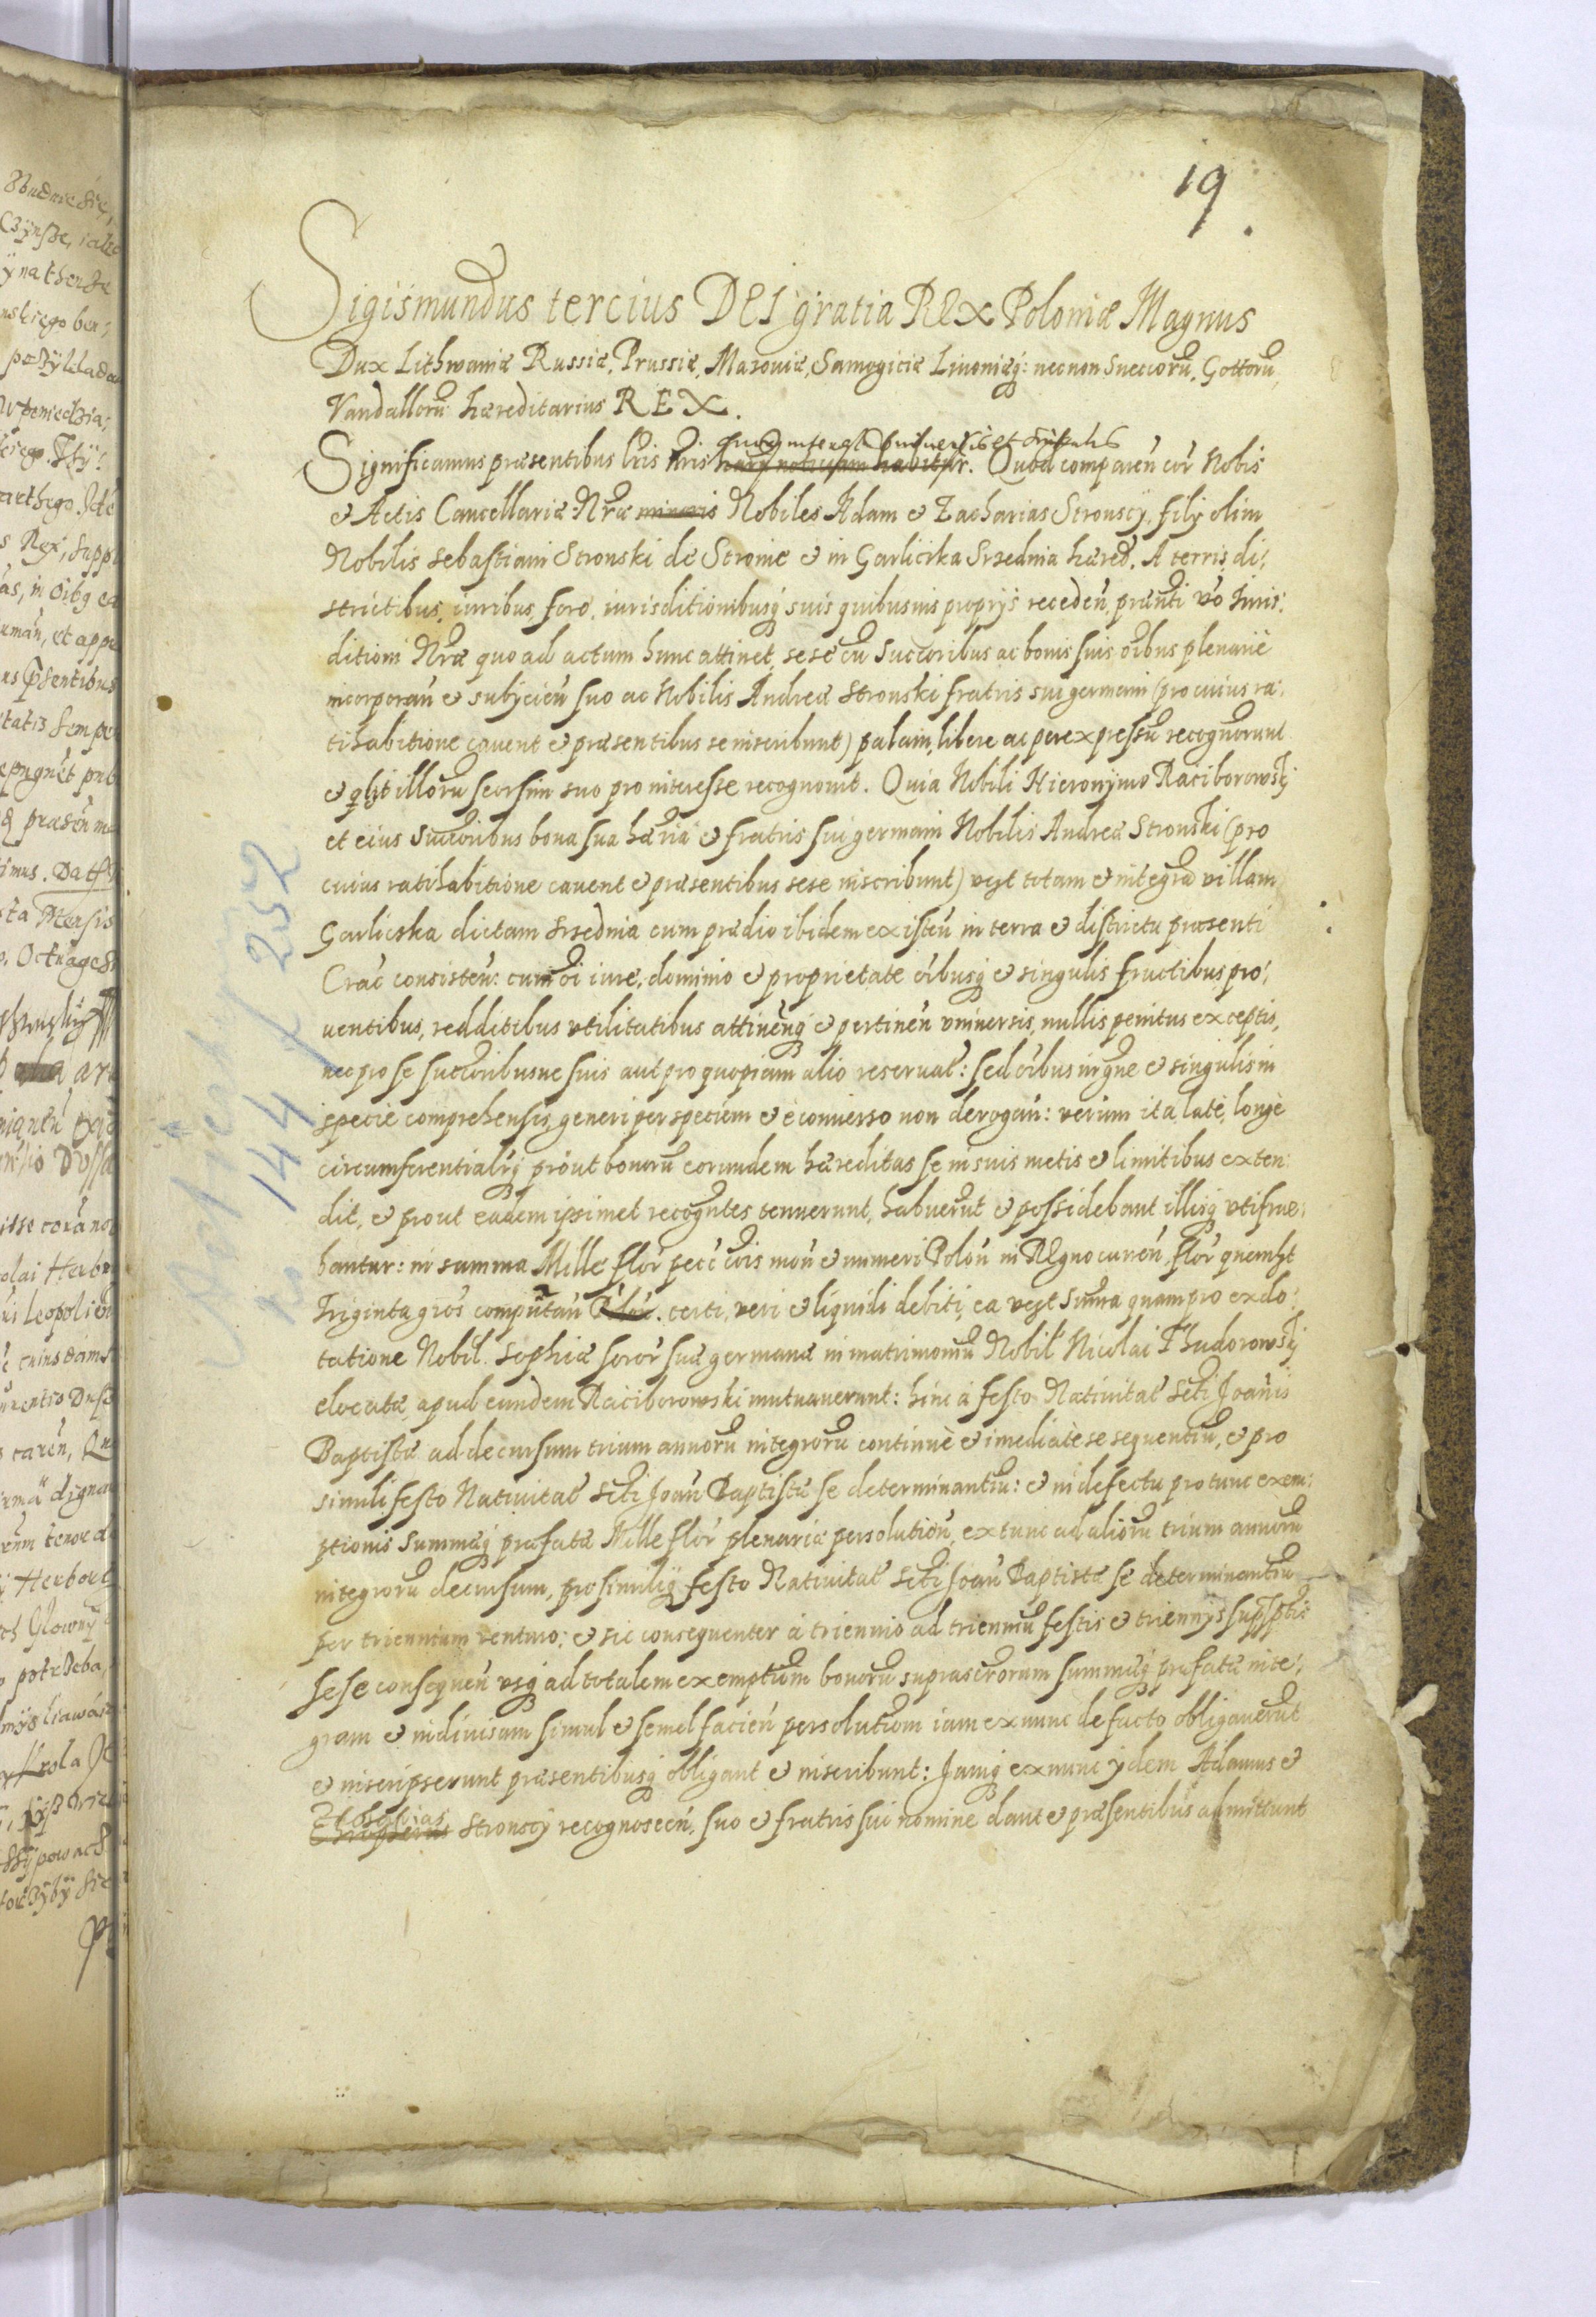 19.
Sigismundus tercius DEI gratia REX Poloniæ Magnus
Dux Lithwaniæ Russiæ, Prussiæ, Masouiæ, Samogiciæ Liuoniæq3: necnon Sueccorū, Gottorū,
Vandallorū hæreditarius REX.
quorum interest vniuersis et singulis
Significamus præsentibus lr̃is nr̃is harũ notitiam habitur̃. Quod comparen̄ cor̃ Nobis
& Actis Cancellariæ Nr̃æ minoris Nobiles Adam & Zacharias Stronscÿ, filÿ olim
Nobilis Sebastiani Stronski de Stronie & in Garliczka Srzednia hæred. A terris, di:
strictibus, iuribus, foro, iurisditionibusq3 suis quibusuis proprÿs receden̄, præsnti vo Iuris:
ditioni Nr̃æ quo ad actum hunc attinet, sese cū Succoribus ac bonis suis oībus plenariè
incorporan̄ & subÿcien̄ suo ac Nobilis Andreæ Stronski fratris sui germani (pro cuius ra:
tihabitione cauent & præsentibus se inscribunt) palam, libere ac per expressū recognorunt
& qlibt illorū seorsim suo pro interesse recognouit. Quia Nobili Hieronÿmo Raciborowskÿ
et eius Succoribus bona sua hæria & fratris sui germani Nobilis Andreæ Stronski (pro
cuius ratihabitione cauent & præsentibus sese inscribunt) vi3t totam & integrā villam
Garlicska dictam Srzednia cum prædio ibidem existen̄ in terra & districtu præsenti
Crac̄ consisten̄: cum oī iure, dominio & proprietate oībusq3 & singulis fructibus, pro:
uentibus, redditibus vtilitatibus attinen̄q3 & pertinen̄ vniuersis, nullis penitus exceptis,
nec pro se succoribusue suis aut pro quopiam alio reseruat̄: sed oībus in gñe & singulis in
specie comprehensis, generi per speciem & è conuerso non derogan̄: verùm ita latè, longè
circumferentialrq3 pròut bonorū eorundem hæreditas se in suis metis & limitibus exten:
dit, & prout eadem ipsimet recogntes tenuerunt, habuerūt & possidebant illisq3 vtifrue:
bantur: in summa Mille flor̄ pecc̄ cōis mon̄ & numeri Polon̄ in REgno curen̄, flor̄ quemlt
triginta gros̄ computan̄ Flor̄. certi, veri & liquidi debiti, ea vi3t Sum̄a quam pro exdo:
tatione Nobil. Sophiæ soror̄ suæ germanæ in matrimoniū Nobil̄ Nicolai Thudorowskÿ
elocatæ, apud eundem Raciborowski mutuauerunt: hinc à festo Natiuitat̄ Scti Joañis
Baptistæ ad decursum trium annorū integrorū continuè & imediatè se sequentiū, & pro
simili festo Natiuitat̄ Scti Joan̄ Baptistæ se determinantiū: & in defectu pro tunc exem:
ptionis Summæq3 præfatæ Mille flor̄ plenariæ persolution̄, ex tunc ad aliorū trium annorū
integrorū decursum, pro similiq3 festo Natiuitat̄ Scti Joan̄ Baptistæ se determinantiū
per triennium venturo: & sic consequenter à triennio ad trienniū festis & triennÿs supsptis
sese consequen̄ vsq3 ad totalem exemptiōm bonorū suprascrōrum summæq3 præfatæ inte:
gram & indiuisam simul & semel facien̄ persolutiōm iam ex nunc de facto obligauerūt
& inscripserunt præsentibusq3 obligant & inscribunt: Jamq3 ex nunc ÿdem Adamus &
Zacharias
Stronscÿ recognoscen̄. suo & fratris sui nomine dant & præsentibus admittunt
144 / 252